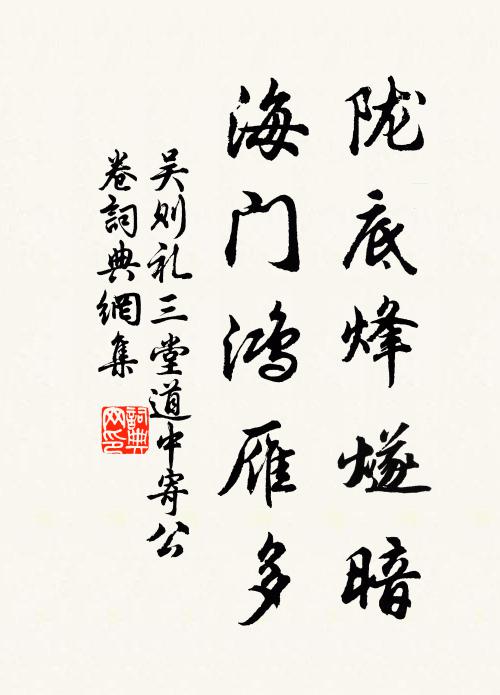 陇底烽燧暗
海门鸿雁多
吴则礼三堂道中寄公
卷詞典網集
詞典网印